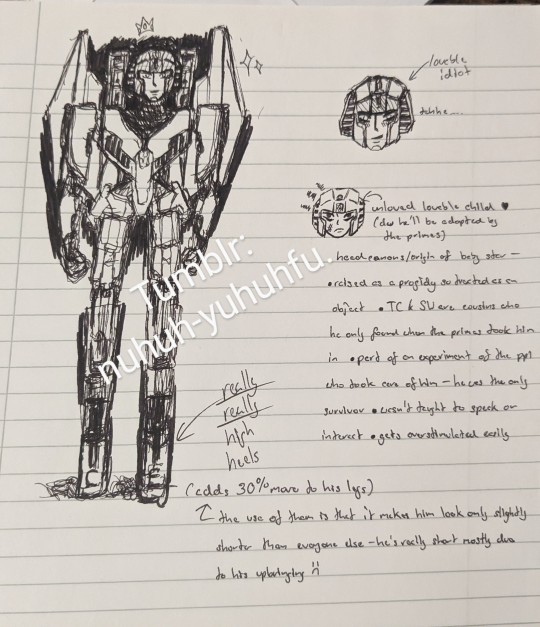 loveble
idiot
hehe...
unloved loveble child ♥
(dw he'll be adopted by
the primes)
headcanons/origin of baby star -
• raised as a prodigy so treated as an
object • TC & SW are cousins who
he only found when the primes took him
in • part of an experiment of the ppl
who took care of him - he was the only
survivor • wasn't taught to speak or
interact • gets overstimulated easily
Tumblr:
nuhuh-yuhuhfu.
really
really
high
heels
(adds 30% more to his legs)
the use of them is that it makes him look only slightly
shorter than everyone else - he's really short mostly due
to his upbringing :(